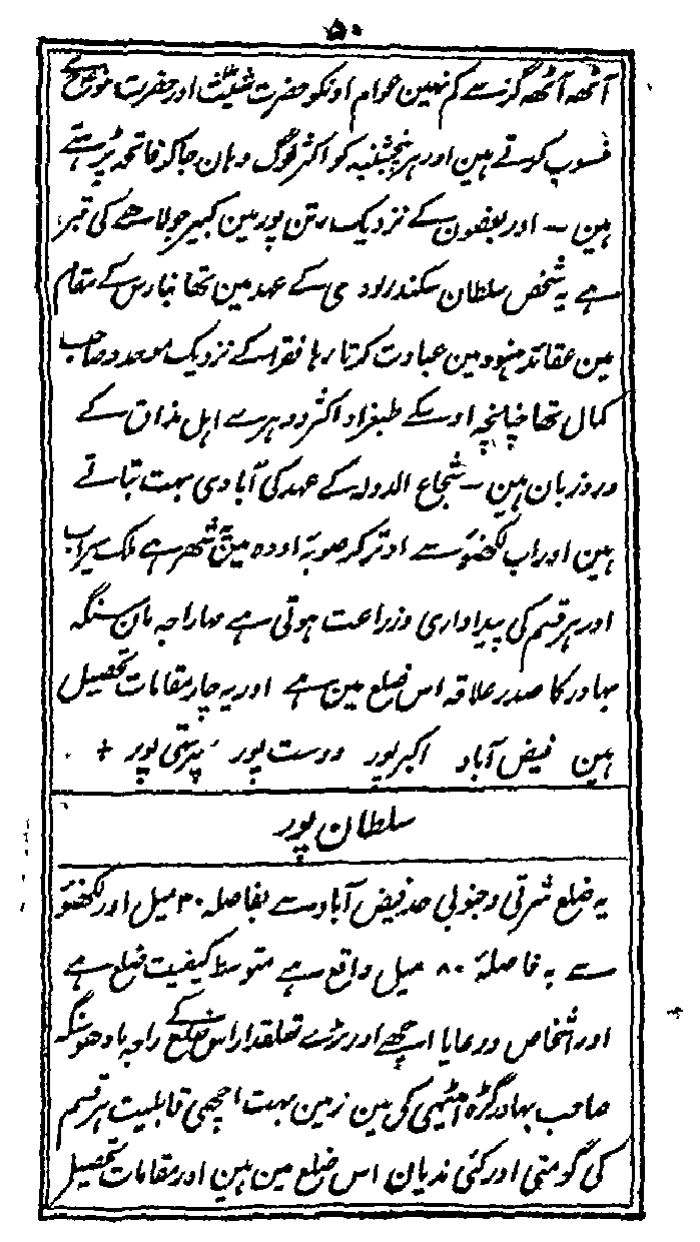 ۵۰
آٹھہ آٹھہ گز سے کم نہین عوام اونکو حضرت شیثؑ اور حضرت
منسوب کرتے ہین اور ہر پنجشنبہ کو اکثر لوگ وہان جا کر فاتحہ پڑہتے
ہین – اور بعضون کے نزدیک رتن پور مین کبیر جولاھے کی قبر
ہے یہ شخص سلطان سکندر لودی کے عہد مین تھا بنارس کے مقام
مین عقائد ہنود مین عبادت کرتا رہا فقرا کے نزدیک موحد و صاحب
کمال تھا چنانچہ اوسکے طبعزاد اکثر دوہرے اہل مذاق کے
ورد زبان ہین – شجاع الدولہ کے عہد کی آبادی بہت بتاتے
ہین اور اب لکھنؤ سے اوتر کر صوبہ اودہ مین یہ شھر ہے ملک سیراب
اور ہر قسم کی پیداواری و زراعت ہوتی ہے مہاراجہ مان سنگہ
بہادر کا صدر علاقہ اس ضلع مین ہے اور یہ چار مقامات تحصیل
ہین فیض آباد اکبر پور دوست پور پرتی پور +
سلطان پور
یہ ضلع شرقی و جنوبی حد فیض آباد سے بفاصلہ ۳۰ میل اور لکھنؤ
سے بہ فاصلۂ ۸۰ میل واقع ہے متوسط کیفیت ضلع ہے
اور اشخاص و رعایا اچھے اور بڑے تعلقدار اس ضلع کے راجہ مادھو سنگہ
صاحب بہادر گڑہ امیٹھی کی ہین زمین بہت اچھی قابلیت ہر قسم
کی گومتی اور کئی ندیان اس ضلع مین ہین اور مقامات تحصیل